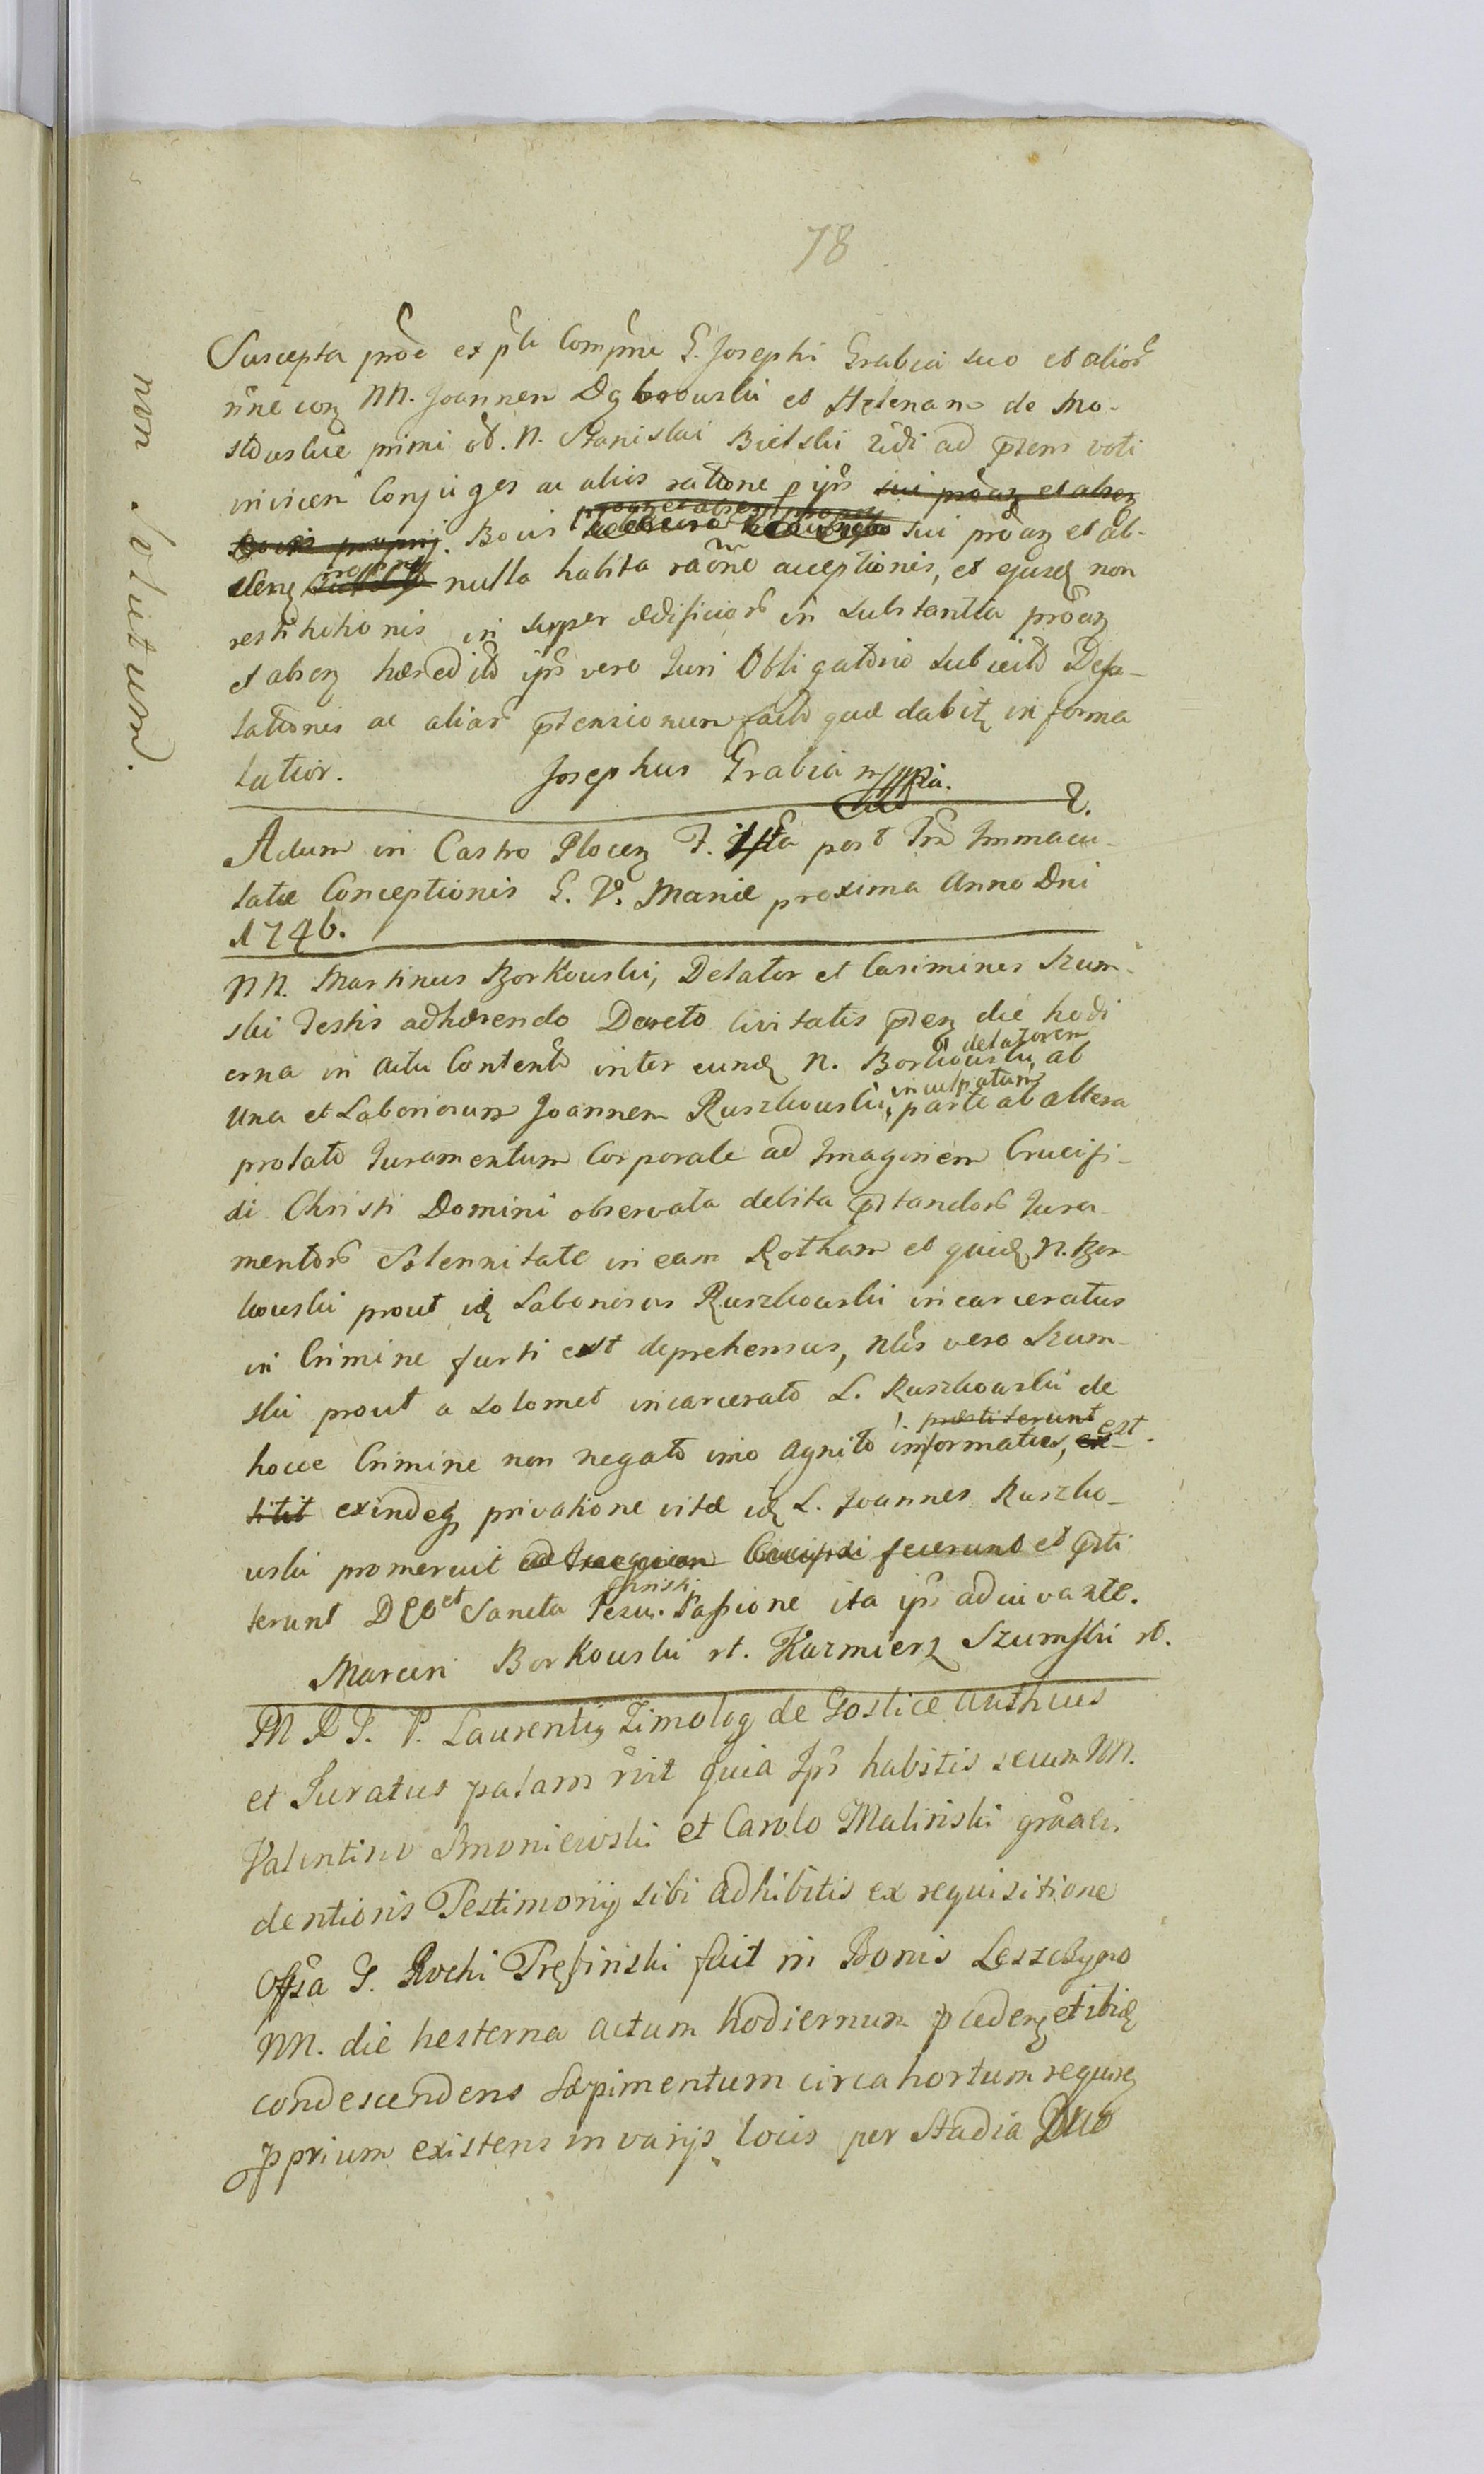 78
non solutum.
Suscepta proē ex pte Compne G. Josephi Grabia suo et alior
nne con NN. Joannem Dąbrowski et Helenam de Mo-
stowskie primi ol. N. Stanislai Bielski 2di ad ptens voti
invicem Conjuges ac alios ratione p ipős sui proaz et absen
Bovis proprij. Bovis sui proaz et ab-
senz nulla habita raōne acceptionis, et ejusd non
restitutionis in super ædificior in substantia proaz
et absenz hæredit ips vero Juri Obligatorio subject
tationis ac aliar ptensionum fact quæ dabitz in forma
latior. Josephus Grabia mppria.
Actum in Castro Plocenz F. 4ta post Fm Immacu-
latæ Conceptionis G. V. Mariæ proxima Anno Dni
1746.
NN. Martinus Borkowski, Delator et Casimirus Szum-
ski Testis adhærendo Decreto Civitatis pdenz die hodi
delatorem
erna in Actu Content inter eund N. Borkowski ab
inculpatum
una et Laboriosum Joannem Ruszkowski, parte ab altera
prolato Juramentum Corporale ad Imaginem Crucifi-
xi Christi Domini observata debita pstandor Jura-
mentor Solennitate in eam Rotham et quid N. Bor-
kowski prout id Laboriosus Ruszkowski incarceratus
in Crimine furti est deprehensus, Nlis vero Szum-
ski prout a solomet incarcerato L. Ruszkowski de
præstiterunt
hocce Crimine non negato imo agnito informatus, est.
titit exindeq privatione vitæ id L. Joannes Ruszko-
wski promeruit ad Imaginem Crucifixi fecerunt et psti
Christi
terunt Deo et Sancta Jesu Passione ita ips adiuvante.
Marcin Borkowski rt. Kazmierz Szumski rt.
M R J. P. Laurentig Zimolog de Gostice Authcus
et Juratus palam rvit quia Ips habitis secum NN.
Valentino Smoniewski et Carolo Malinski gra ev.
dentioris Testimonij sibi adhibitis ex requisitione
Offsa G. Rochi Trębinski fuit in Bonis Leszczyno
NN. die hesterna actum hodiernum pcedenz et ibid
condescendens sæpimentum circa hortum
pprium existens in varijs locis per Stadia Duo